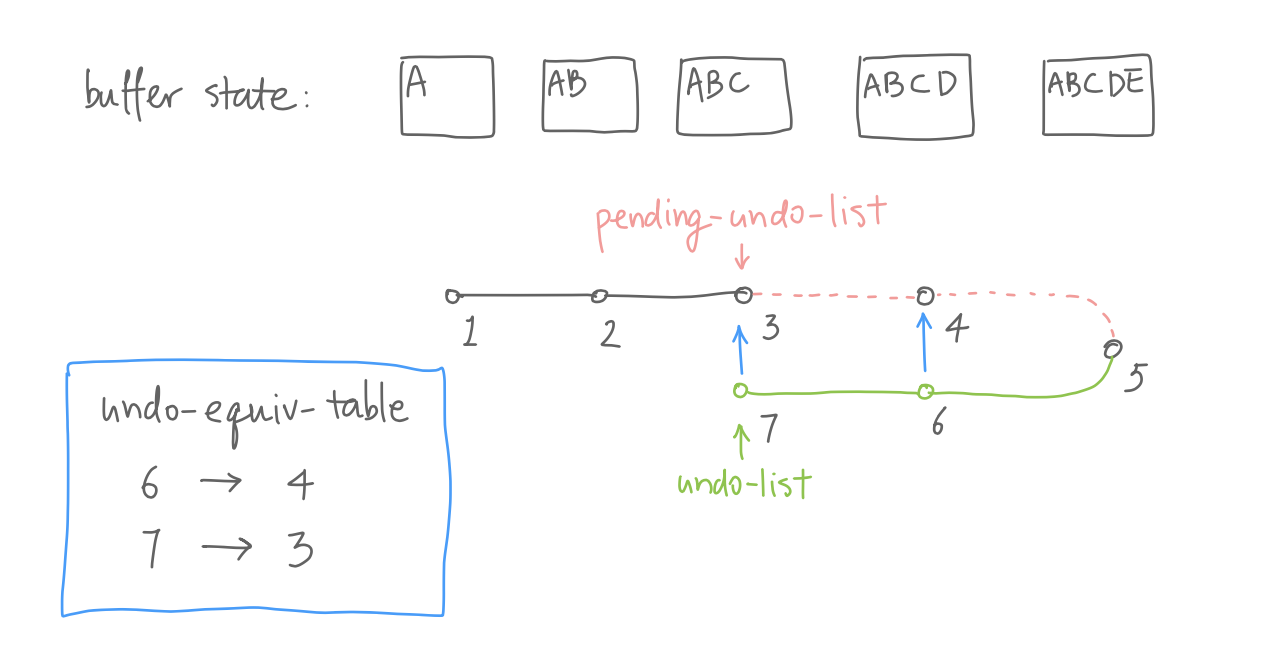 buffer state:
A
AB
ABC
ABCD
ABCDE
pending-undo-list
1
2
3
4
5
7
6
undo-list
undo-equiv-table
6 → 4
7 → 3